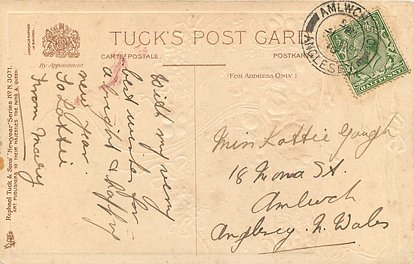 TUCK'S POST CARD
CARTE POSTALE.
POSTKARTE.
By Appointment
(FOR ADDRESS ONLY.)
AMLWCH
ANGLESEY
Raphael Tuck & Sons "Newyear" Series No N. 3071.
ART PUBLISHERS TO THEIR MAJESTIES THE KING & QUEEN.
With my very
best wishes for
a bright & Happy
new Year
To Lottie
from Maery
Miss Lottie Gough
18 Mona St.
Amlwch
Anglesey N. Wales